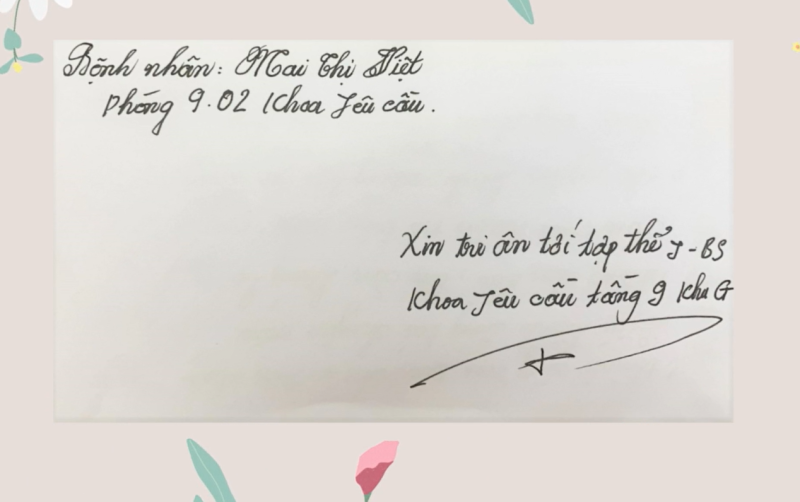 Bệnh nhân: Mai Thị Việt
Phòng 9.02 Khoa Yêu cầu.
Xin tri ân tới tập thể Y-BS
Khoa Yêu cầu tầng 9 Khu G